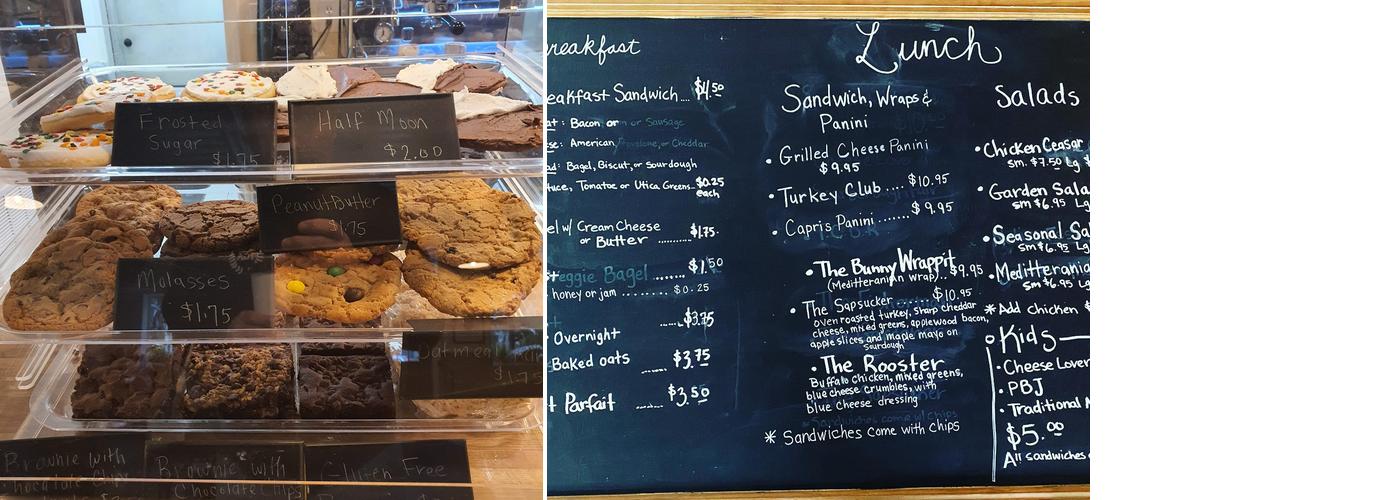 Frosted
Sugar
$1.75
Half Moon
$2.00
Peanut Butter
$1.75
Molasses
$1.75
Oatmeal
$1.75
Brownie with
Chocolate Chip
Brownie with
Chocolate Chips
Gluten Free
reakfast
eakfast Sandwich... $4.50
at: Bacon or or Sausage
se: American, Provolone, or Cheddar
ad: Bagel, Biscut, or Sourdough
tuce, Tomatoe or Utica Greens.. $0.25
each
el w/ Cream Cheese
or Butter .......... $1.75
eggie Bagel ........ $1.50
honey or jam ........ $0.25
Overnight ...... $3.75
Baked oats ...... $3.75
t Parfait ...... $3.50
Lunch
Sandwich, Wraps &
Panini
• Grilled Cheese Panini
$9.95
• Turkey Club .... $10.95
• Capris Panini ....... $9.95
• The Bunny Wrappit
(Mediterranian wrap).. $9.95
• The Sapsucker $10.95
oven roasted turkey, sharp cheddar
cheese, mixed greens, applewood bacon,
apple slices and maple mayo on
sourdough
• The Rooster
Buffalo chicken, mixed greens,
blue cheese crumbles, with
blue cheese dressing
* Sandwiches come with chips
Salads
• Chicken Ceasar
sm. $7.50 Lg $
• Garden Sala
sm $6.95 Lg
• Seasonal Sal
sm $6.95 Lg
• Meditterania
sm $6.95 Lg
* Add chicken $
Kids
• Cheese Lover
• PBJ
• Traditional
$5.00
All sandwiches